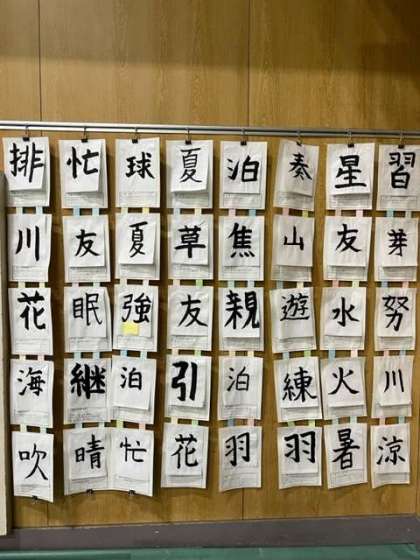 排 忙 球 夏 泊 奏 星 習
川 友 夏 草 焦 山 友 芽
花 眠 強 友 親 遊 水 努
海 継 泊 引 泊 練 火 川
吹 晴 忙 花 羽 羽 暑 涼